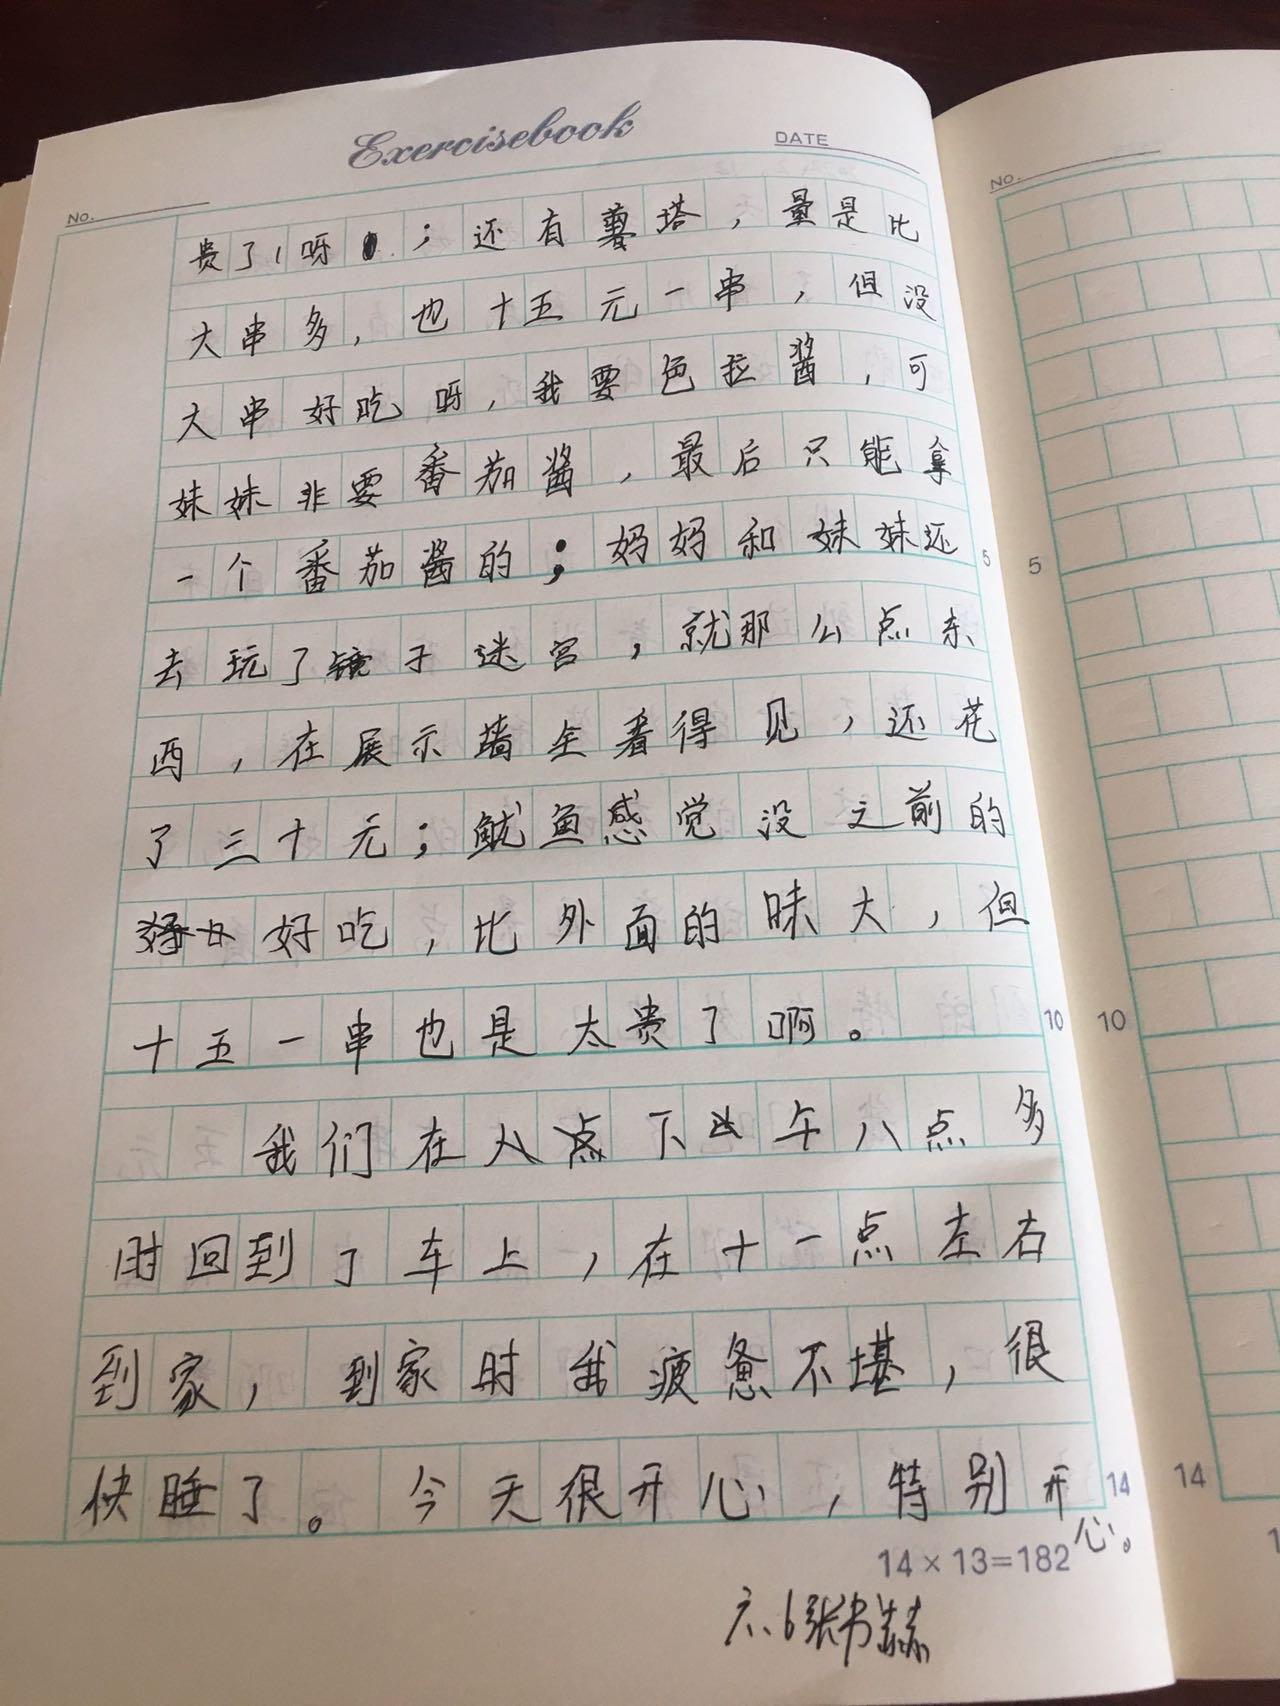 Exercisebook
DATE
No.
No.
贵了呀；还有薯塔，量是比
大串多，也十五元一串，但没
大串好吃呀，我要色拉酱，可
妹妹非要番茄酱，最后只能拿
一个番茄酱的；妈妈和妹妹还
去玩了镜子迷宫，就那么点东
西，在展示墙全看得见，还花
了三十元；鱿鱼感觉没之前的
好吃，比外面的味大，但
十五一串也是太贵了啊。
我们在下午八点多
时回到了车上，在十一点左右
到家，到家时我疲惫不堪，很
快睡了。今天很开心，特别开
心。
5
5
10
10
14
14
14×13=182
六.6张书赫